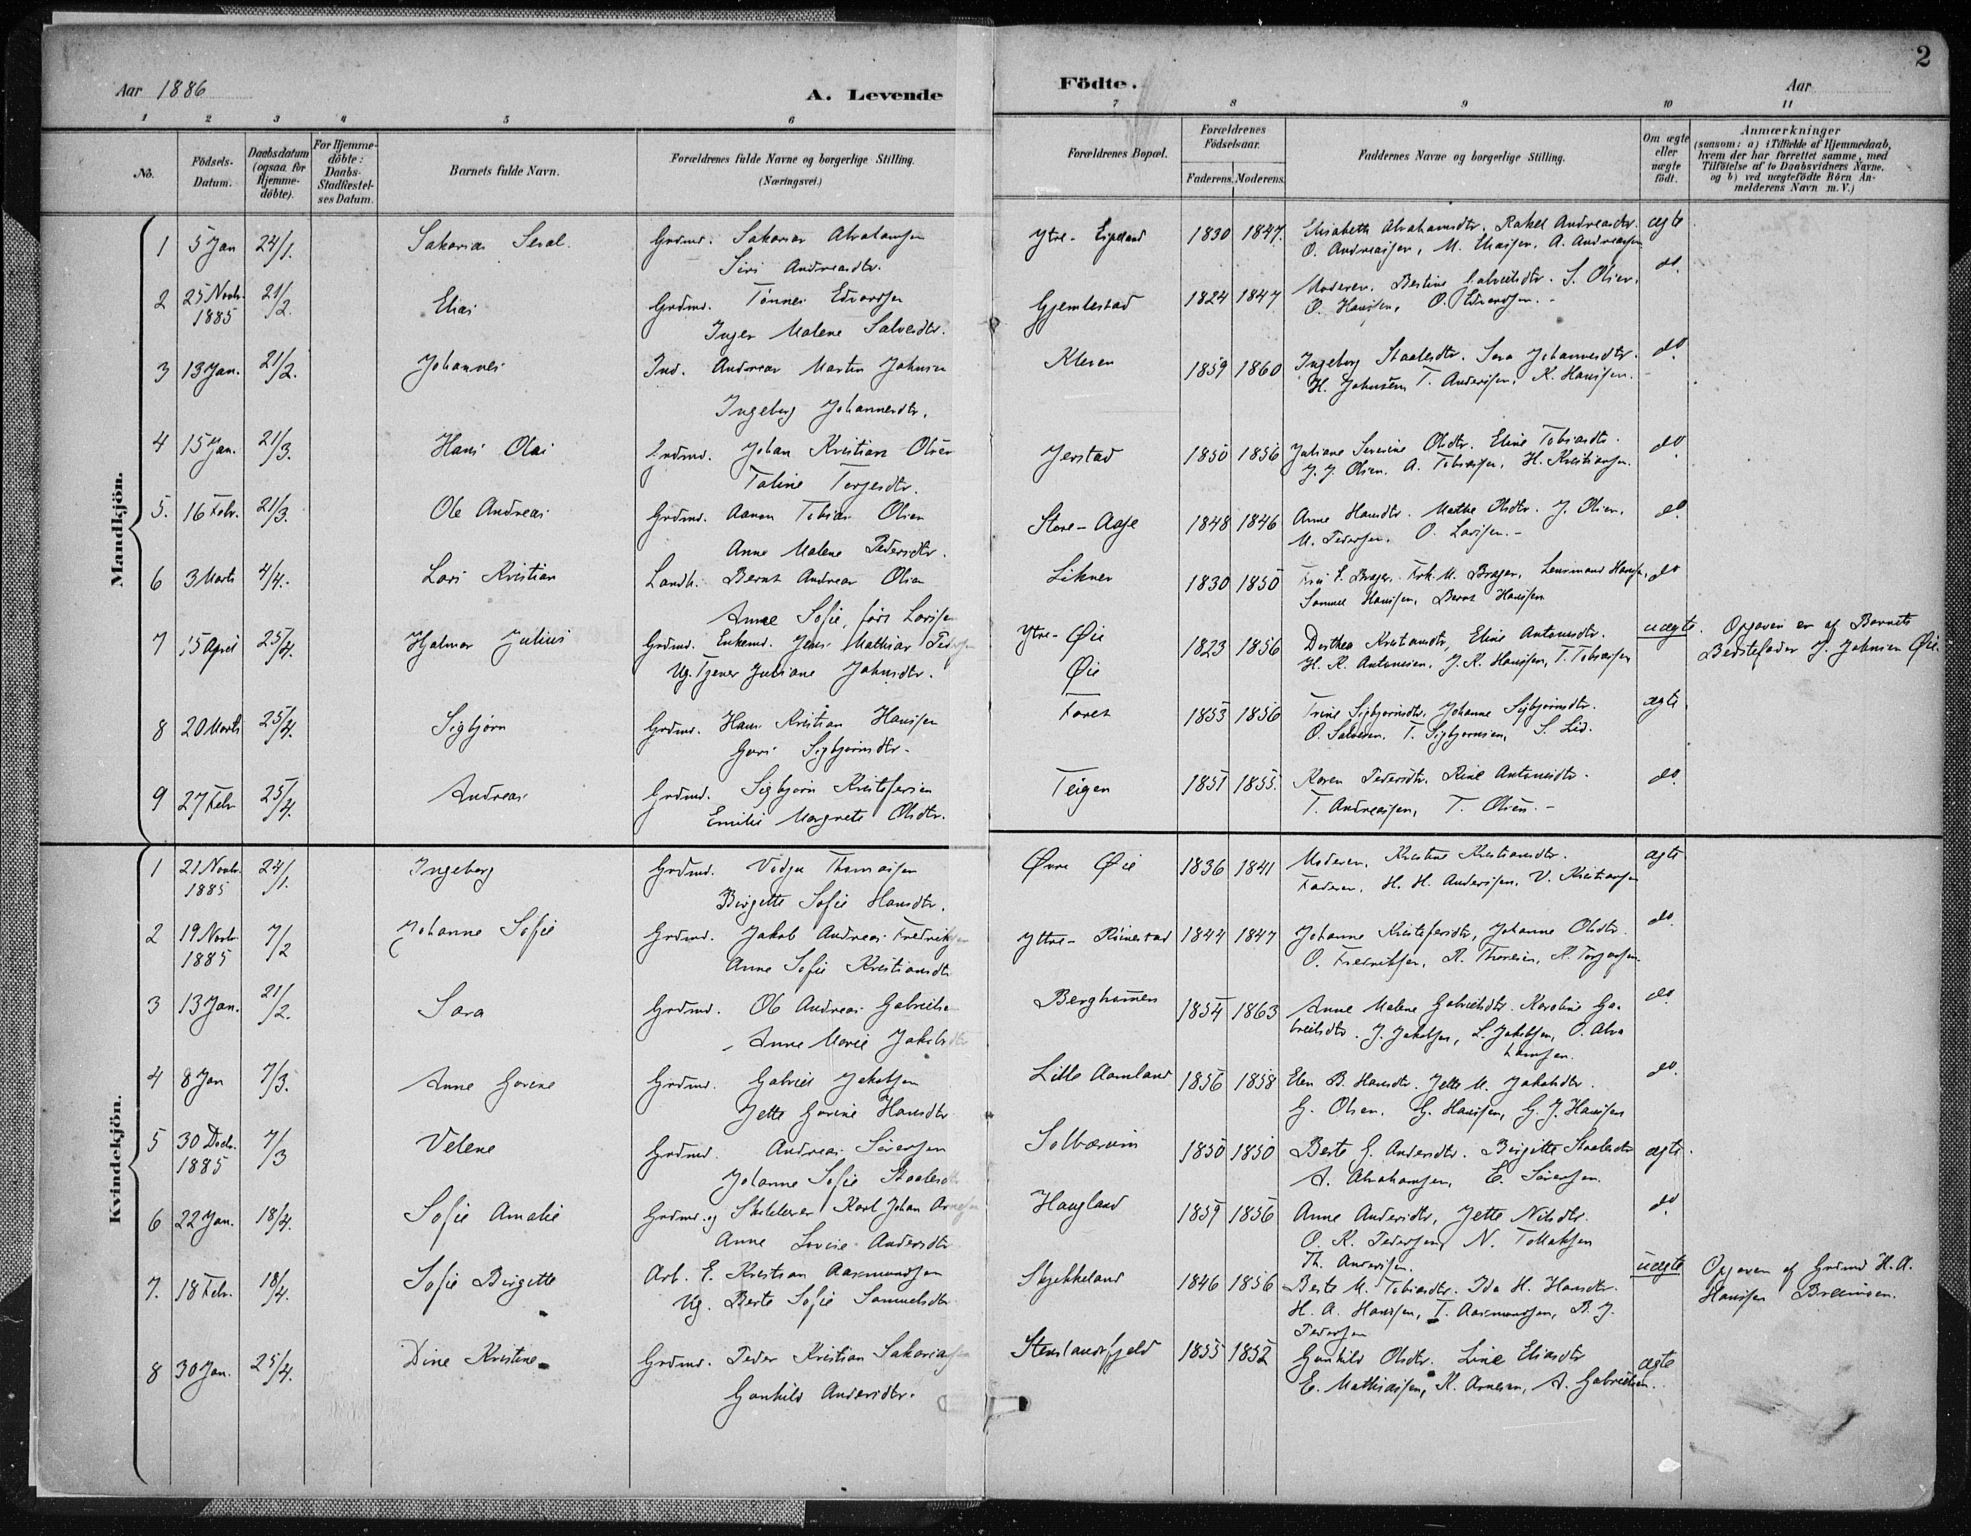 2
Aar 1886
A. Levende
Födte.
Aar
1 2 3 4 5 6 7 8 9 10 11
No.
Födsels-Datum.
Daabsdatum (ogsaa for Hjemme-döbte).
For Hjemme-döbte: Daabs-Stadfæstel-ses Datum.
Barnets fulde Navn.
Forældrenes fulde Navne og borgerlige Stilling.
(Næringsvei.)
Forældrenes Bopæl.
Forældrenes Födselsaar.
Faderens. Moderens.
Faddernes Navne og borgerlige Stilling.
Om ægte eller uægte födt.
Anmærkninger
(saasom: a) i Tilfælde af Hjemmedaab, hvem der har forrettet samme, med Tilföielse af to Daabsvidners Navne, og b) ved uægtefödte Börn An-melderens Navn m. V.)
Mandkjön.
1 5 Jan 24/1. Sakarias Grdmd. Sakarias Abrahamsen Ytre- 1830 1847. Elisabeth Abrahamsdtr, Rakel Andreasdtr. ægte
Siri Andreasdtr. O. Andreassen, M. Eliassen, A. Andreassen
2 25 Novb. 1885 21/2. Elias Grdmd. Tønnes Edvardsen Gjemlestad 1824 1847 Moderen. Bertine Gabrielsdtr. S. Olsen, do.
Inger Malene Salvesdtr. O. Hansen, O. Edvardsen.-
3 13 Jan. 21/2. Johannes Ind. Andreas Martin Johnsen Kleven 1859 1860 Ingeborg Staalesdtr. Sara Johannesdtr. do.
Ingeborg Johannesdtr. H. Johnsen, T. Andersen, K. Hansen.
4 15 Jan. 21/3. Hans Olai Grdmd. Johan Kristian Olsen Jerstad 1850 1856 Juliane Severine Olsdtr. Eline Tobiasdtr. do.
Taline Torjesdtr. J. J. Olsen. A. Tobiassen, H. Kristiansen.
5. 16 Febr. 21/3. Ole Andreas Grdmd. Aanen Tobias Olsen Store- 1848 1846 Anne Hansdtr. Mathe Olsdtr. J. Olsen, do.
Anne Malene Pedersdtr. M. Pedersen, O. Larsen.-
6 3 Marts 4/4. Lars Kristian Landh. Bernt Andreas Olsen Liknes 1830 1850 Fru Brager. Frk. M. Brager. Lensmand Hansen, do
Anne Sofie, født Larsen Samuel Hansen, Bernt Hansen
7 15 April 25/4. Hjalmar Julius Grdmd. Enkemd. Jens Mathias Ytre- Øie 1823 1856 Dorthea Kristansdtr, Eline Antonsdtr. uægte. Opgaven er af Barnets
Ug. Tjener Juliane Johnsdtr. Øie H. K. Antonsen. J. K. Hansen, T. Tobiassen Bedstefader J. Johnsen Øie.
8 20 Marts 25/4. Sigbjørn Grdmd. Hans Kristian Hansen 1853 1856 Trine Sigbjørnsdtr. Johanne Sigbjørnsdtr. ægte
Guri Sigbjørnsdtr. O. Salvesen. T. Sigbjørnsen, S. Lid.
9 27 Febr 25/4. Andreas Grdmd. Sigbjørn Kristofersen Teigen 1851 1855. Karen Pedersdtr. Rine Antonsdtr. do.
Emilie Margrete Olsdtr. T. Andreassen, T. Olsen.-
Kvindekjön.
1 21 Novb. 1885 24/1. Ingeborg Grdmd. Thomassen Øvre Øie 1836 1841 Moderen. Kristine Kristiansdtr. ægte
Birgitte Sofie Hansdtr. Faderen. H. H. Andersen. V. Kristiansen
2 19 Novb. 1885 7/2 Johanne Sofie Grdmd. Jakob Andreas Fredriksen Yttre- 1844 1847 Johanne Kristofersdtr, Johanne Olsdtr. do.
Anne Sofie Kristiansdtr O. Fredriksen, R. Thoresen, K. Torjesen.
3 13 Jan. 21/2. Sara Grdmd. Ole Andreas Gabrielsen Berghommen 1854 1863 Anne Malene Gabrielsdtr. Karoline Ga- do.
Anne Marie Jakobsdtr brielsdtr. J. Jakobsen, L. Jakobsen, O. Abra
hamsen.
4 8 Jan 7/3. Anne Gurine Grdmd. Gabriel Jakobsen Lille Aamland 1856 1858 Elen B. Hansdtr. Jette M. Jakobsdtr. do.
Jette Gurine Hansdtr G. Olsen. G. Hansen, G. J. Hansen
5 30 Decb. 1885 7/3 Velene Grdmd. Andreas Sørensen 1850 1850 Berte G. Andersdtr. Birgitte Staalesdtr ægte.
Johanne Sofie Staalesdtr A. Abrahamsen, E. Sørensen.
6 22 Jan. 18/4. Sofie Amalie Grdmd. og Karl Johan Haugland 1859 1856 Anne Andersdtr, Jette Nilsdtr. do
Anne Andersdtr O. K. Pedersen, N. Tollaksen
Th. Andersen.
7. 18 Febr. 18/4. Sofie Birgitte Arb. E. Kristian Aasmundsen Skjekkeland 1846 1856 Berte M. Tobiasdtr. Ida H. Hansdtr. uægte Opgaven af Grdmd H. A.
Ug. Berte Sofie Samuelsdtr H. A. Hansen, T. Aasmundsen, B. J. Hansen
Pedersen
8 30 Jan. 25/4. Dine Kristine Grdmd. Peder Kristian Sakariassen Stenslandsfjeld 1855 1852 Gunhild Olsdtr. Line Eliasdtr ægte
Gunhild Andersdtr. E. Mathiassen, K. Arnesen, A. Gabrielsen.